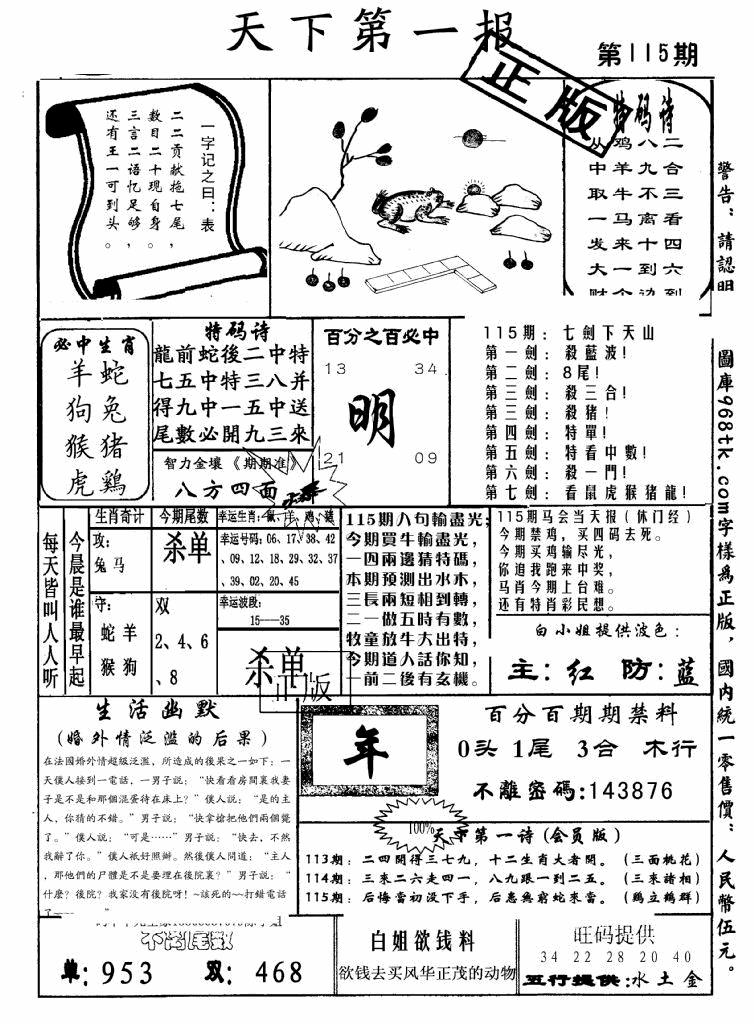 天下第一报
第115期
正版
一字记之曰：表
二二贡献拖七尾，
数目二十现自身，
三言二语忆足够。
还有王一可到头。
特码诗
从鸡八二
中羊九合
取牛不三
一马离看
发来十四
大一到六
警告：請認明圖庫968tk.com字樣為正版，國內統一零售價：人民幣伍元。
必中生肖
羊蛇
狗兔
猴豬
虎鷄
特码詩
龍前蛇後二中特
七五中特三八并
得九中一五中送
尾數必開九三來
智力金壤《期期准》
八方四面
百分之百必中
13
34
明
21
09
115期：七劍下天山
第一劍：殺藍波！
第二劍：8尾！
第三劍：殺三合！
第三劍：殺猪！
第四劍：特單！
第五劍：特看中數！
第六劍：殺一門！
第七劍：看鼠虎猴猪龍！
每天皆叫人人听
今晨是谁最早起
生肖奇计
攻：
兔马
守：
蛇羊
猴狗
今期尾数
杀单
双
2、4、6
、8
幸运号码：06、17、38、42
、09、12、18、29、32、37
、39、02、20、45
幸运波段：
15——35
杀单
正版
115期八句輸盡光；
今期買牛輸盡光，
一四兩邊猜特碼，
本期預測出水木，
三長兩短相到轉，
二一做五時有數，
牧童放牛大出特，
今期道人話你知，
一前二後有玄機。
115期马会当天报（休门经）
今期禁鸡，买四码去死。
今期买鸡输尽光，
你追我跑来中奖，
马肖今期上台难。
还有特肖彩民想。
白小姐提供波色：
主：红 防：蓝
生活幽默
（婚外情泛滥的后果）
在法國婚外情超級泛濫，所造成的後果之一如下：一
天僕人接到一電話，一男子說：“快看看房間裏我妻
子是不是和那個混蛋待在床上？”僕人說：“是的主
人，你猜的不錯。”男子說：“快拿槍把他們兩個斃
了。”僕人說：“可是……”男子說：“快去，不然
我辭了你。”僕人祇好照辦。然後僕人問道：“主人
，那他們的尸體是不是要埋在後院裏？”男子說：“
什麼？後院？我家没有後院呀！~該死的~~打錯電話
年
百分百期期禁料
0头 1尾 3合 木行
不離密碼：143876
100%
天下第一诗（会员版）
113期：二四開得三七九，十二生肖大者開。（三面桃花）
114期：三來二六走四一，八九跟一到二五。（三來諸相）
115期：后悔當初没下手，后患無窮蛇來當。（鷄立鶴群）
单：953 双：468
白姐欲钱料
欲钱去买风华正茂的动物
旺码提供
34 22 28 20 40
五行提供：水土金